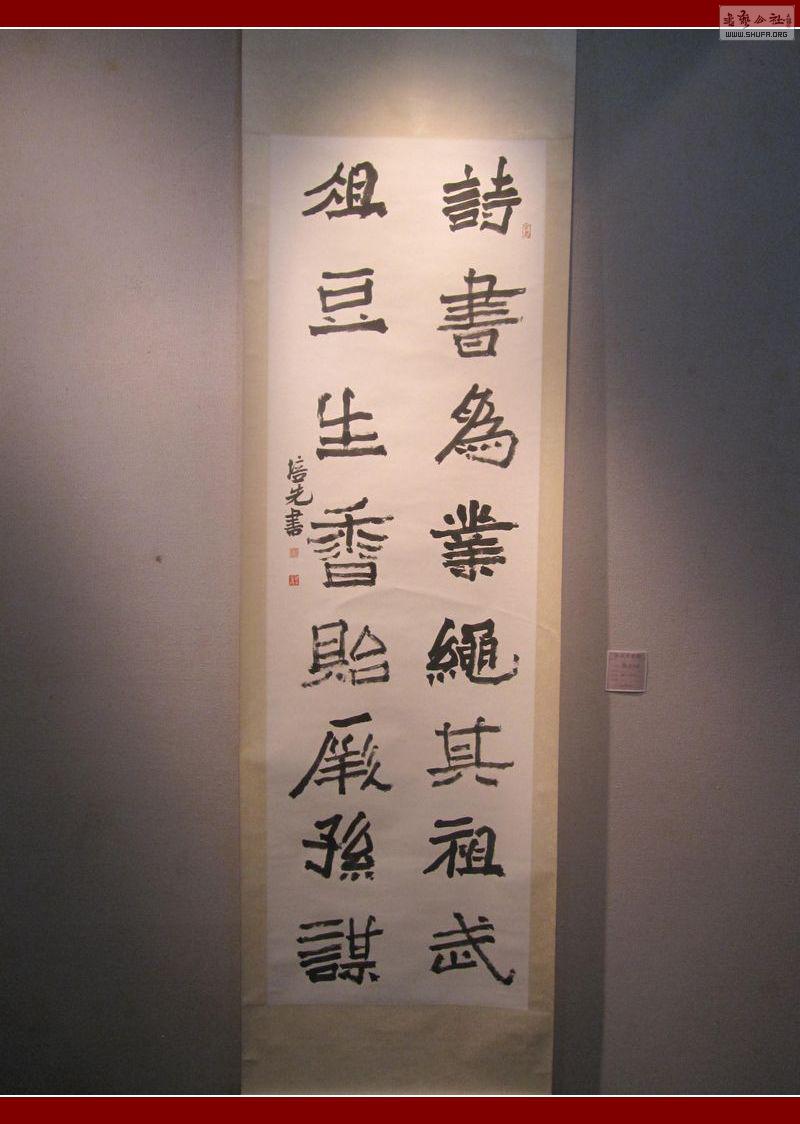 詩書為業繩其祖武
俎豆生香貽厥孫謀
培先書
書藝公社
WWW.SHUFA.ORG